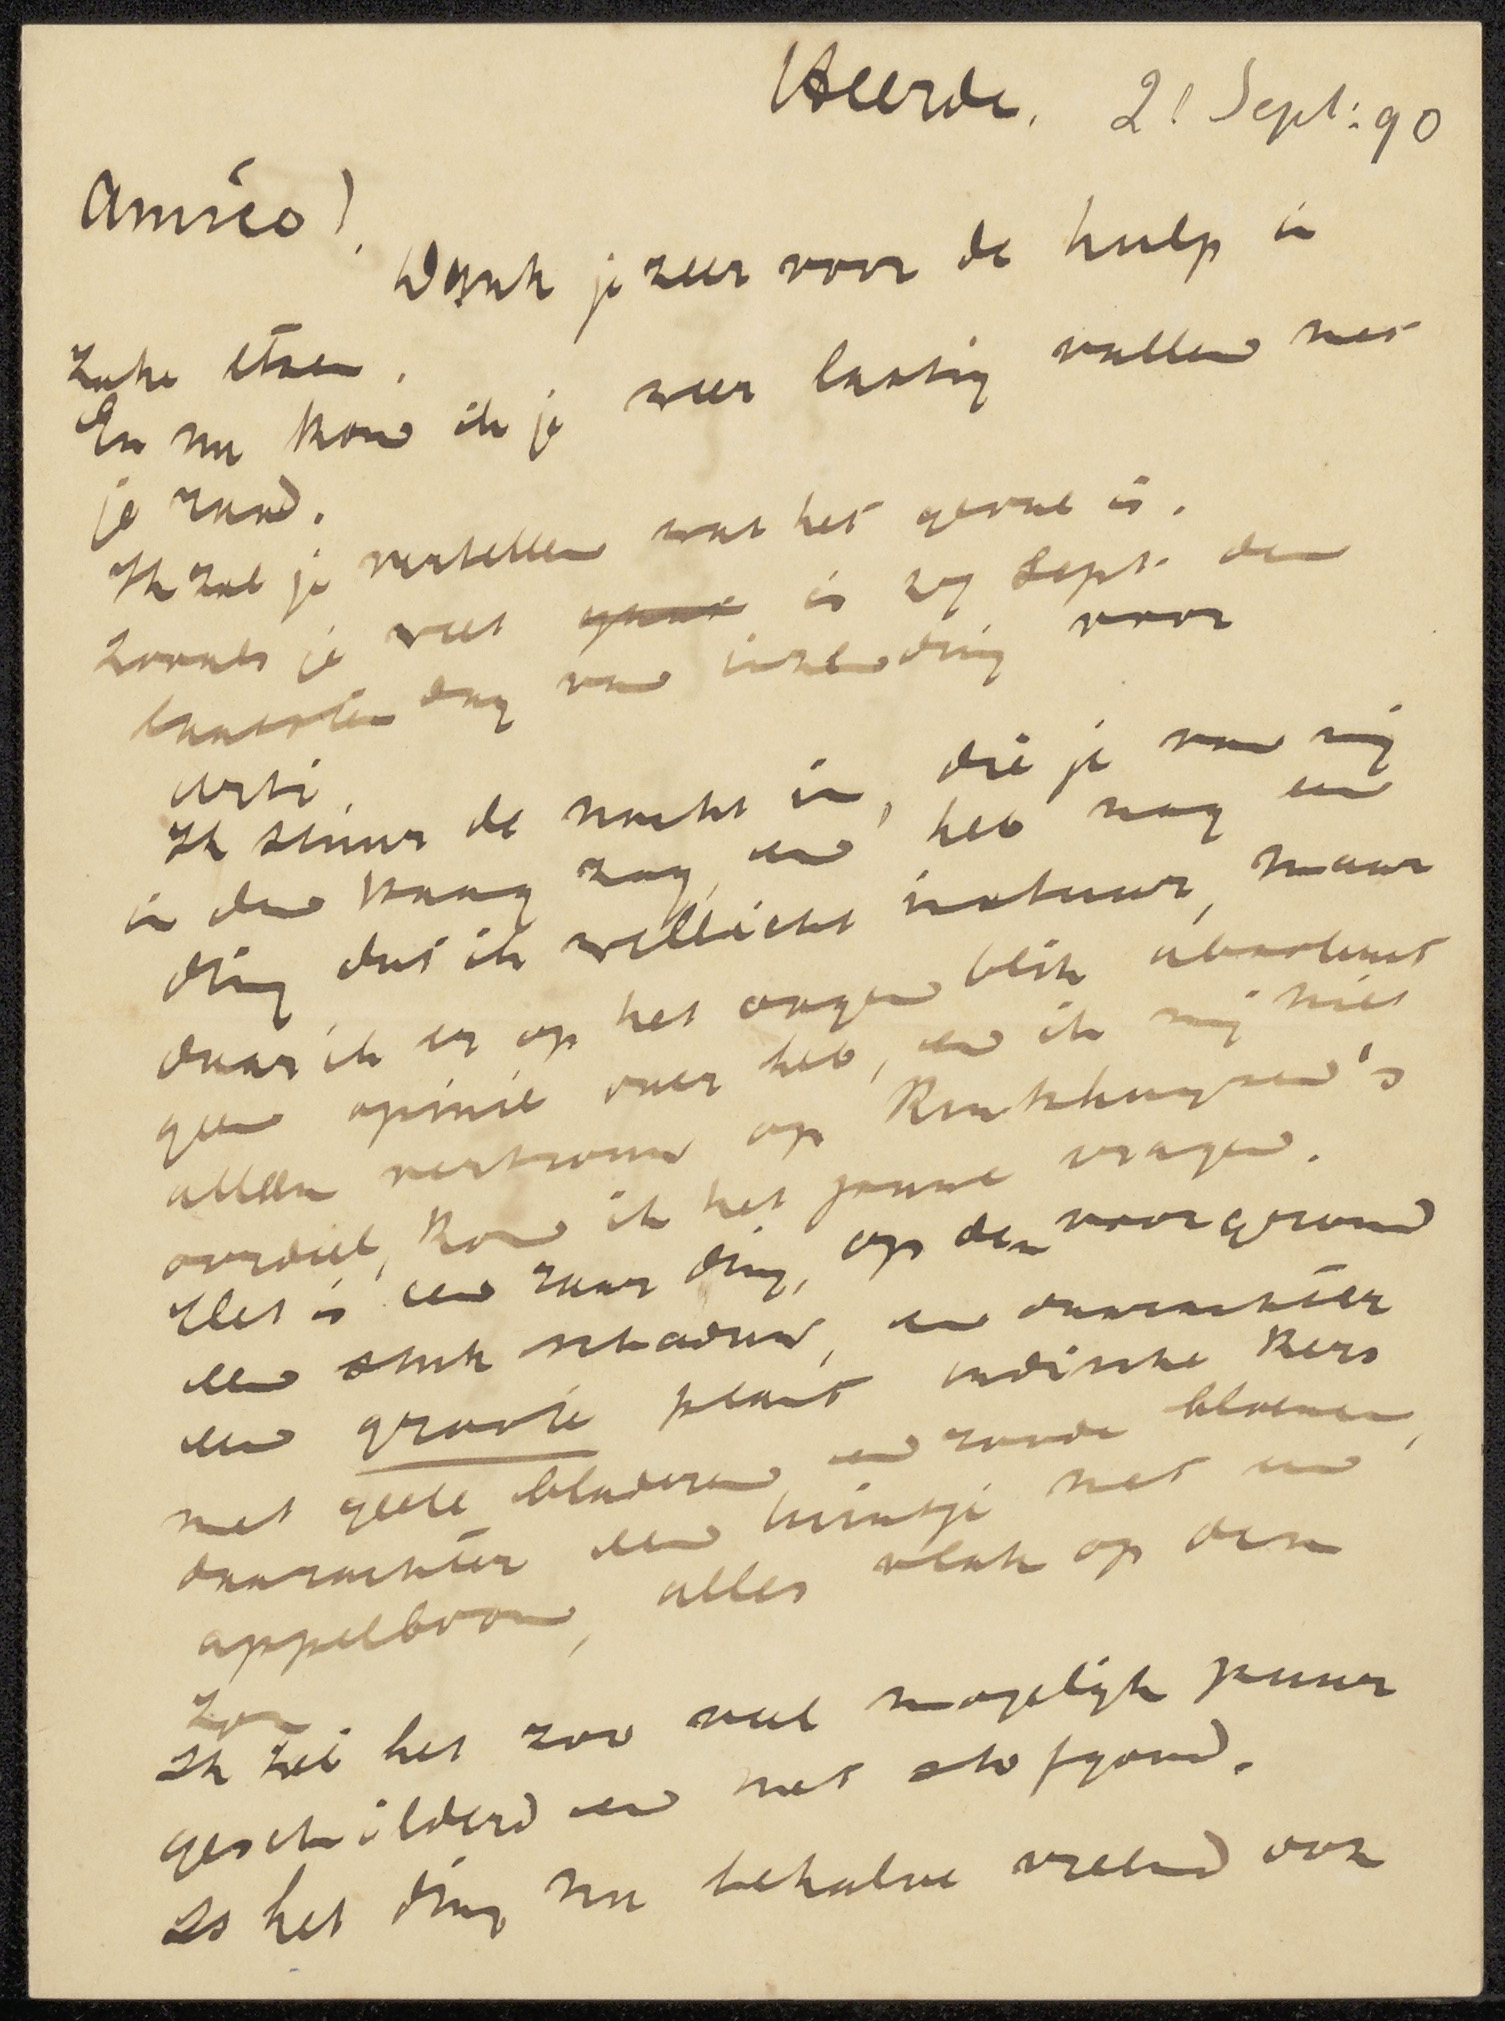 Heerde. 21 Sept: 90
Amice!
Dank je zeer voor de hulp in
zake etsen.
En nu kom ik je weer lastig vallen met
je raad.
Ik zal je vertellen wat het geval is.
zooals je weet is 27 Sept. den
laatsten dag van inzending voor
Arti.
Ik stuur de nacht in, die je van mij
in den Haag zag, en heb nog een
ding dat ik wellicht instuur, maar
daar ik er op het oogen blik absoluut
geen opinie over heb, en ik mij niet
alleen vertrouw op Kruthuysen's
oordeel, kom ik het jouwe vragen.
Het is een raar ding, op den voorgrond
een stuk schaduw, en daarachter
een groote plant indische kers
met geele bladeren en roode bloemen,
daarachter een huisje met een
appelboom, alles vlak op den
zon
Ik heb het zoo veel mogelijk puur
geschilderd en met stofgoud.
Is het ding nu behalve vreemd ook